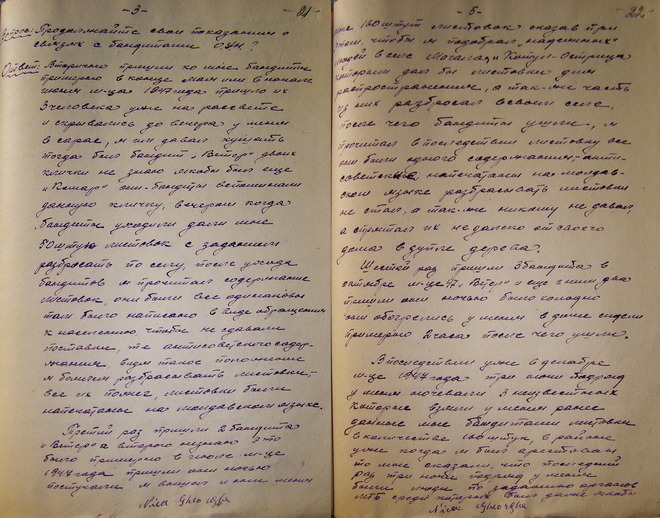 - 3 -
21
Вопрос: Продолжайте свои показания о
связях с бандитами О.У.Н.?
Ответ: Вторично пришли ко мне бандиты
примерно в конце мая или в начале
июня м-ца 1947 года пришло их
3 человека уже на рассвете
и скрывались до вечера у меня
в сарае, я им давал кушать
тогда был бандит „Ветер" двоих
клички не знаю якобы был еще
и „Комар" они-бандиты вспоминали
данную кличку, вечером когда
бандиты уходили дали мне
50 штук листовок с заданием
разбросать по селу, после ухода
бандитов я прочитал содержание
листовок, они были все одинаковы
там было написано в виде обращения
к населению чтобы не сдавали
поставки, те антисоветского содер-
жания, видя такое положение
я боялся разбрасывать листовки-
все их пожег, листовки были
напечатаны на молдавском языке.
Третий раз пришли 2 бандита
„Ветер" а второго незнаю это
было примерно в июле м-це
1947 года пришли они ночью
постучали я вышел и они меня
Nica Gheorghe
- 6 -
22
мне 160 штук листовок сказав при
этом чтобы я подобрал „надежных"
людей в селе Магала и
которым дал бы листовки для
распространения, а так-же часть
из них разбросал в своем селе.
После чего бандиты ушли, я
прочитал в последствии листовку все
они были одного содержания-анти-
советские, напечатаны на молдав-
ском языке разбрасывать листовки
не стал, а так-же никому не давал,
а спрятал их недалеко от своего
дома в дупле дерева.
Шестой раз пришли 3 бандита в
октябре м-це 47. „Ветер" и еще с ним два
пришли они ночью было холодно
они обогрелись у меня в доме сидели
примерно 2 часа после чего ушли.
В последствии уже в декабре
м-це 1947 года три ночи подряд
у меня ночевали 3 неизвестных
которые взяли у меня ранее
данные мне бандитами листовки
в количестве 160 штук, в районе
уже когда я был арестован
то мне сказали, что последний
раз три ночи подряд у меня
были люди по заданию органов
МГБ среди которых был даже
Nica Gheorghe